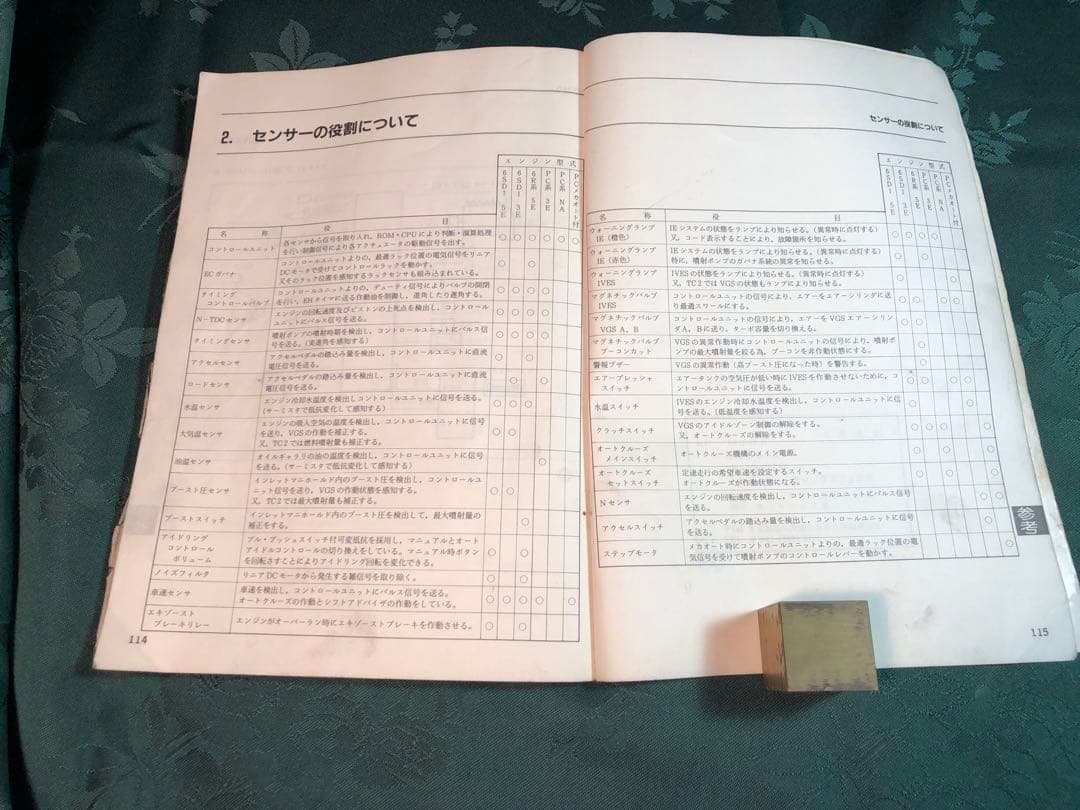 2. センサーの役割について
エンジン型式
6SD1 5E
6SD1 3E
6R系 5E
PC系 3E
PC系 NA
PCメカオート付
名 称
役 目
コントロールユニット
各センサから信号を取り入れ、ROM・CPUにより判断・演算処理
を行い制御信号により各アクチュエータの駆動信号を出す。
○ ○ ○ ○ ○ ○
ECガバナ
コントロールユニットよりの、最適ラック位置の電気信号をリニア
DCモータで受けてコントロールラックを動かす。
又そのラック位置を感知するラックセンサも組み込まれている。
○ ○
タイミング
コントロールバルブ
コントロールユニットより、デューティ信号によりバルブの開閉
を行い、EHタイマに送る作動油を制御し、進角したり遅角する。
○ ○ ○ ○
N−TDCセンサ
エンジンの回転速度及びピストンの上死点を検出し、コントロール
ユニットにパルス信号を送る。
○ ○ ○ ○
タイミングセンサ
噴射ポンプの噴射時期を検出し、コントロールユニットにパルス信
号を送る。(実進角を感知する)
○ ○ ○ ○
アクセルセンサ
アクセルペダルの踏込み量を検出し、コントロールユニットに直流
電圧信号を送る。
○ ○
ロードセンサ
アクセルペダルの踏込み量を検出し、コントロールユニットに直流
電圧信号を送る。
○ ○
水温センサ
エンジン冷却水温度を検出しコントロールユニットに信号を送る。
(サーミスタで抵抗変化して感知する)
○ ○ ○
大気温センサ
エンジンの吸入空気の温度を検出し、コントロールユニットに信号
を送り、VGSの作動を補正する。
又、TC2では燃料噴射量も補正する。
○ ○
油温センサ
オイルギャラリの油の温度を検出し、コントロールユニットに信号
を送る。(サーミスタで抵抗変化して感知する)
○
ブースト圧センサ
インレットマニホールド内のブースト圧を検出し、コントロールユ
ニット信号を送り、VGSの作動状態を感知する。
又、TC2では最大噴射量も補正する。
○ ○
ブーストスイッチ
インレットマニホールド内のブースト圧を検出して、最大噴射量の
補正をする。
○
アイドリング
コントロール
ボリューム
プル・プッシュスイッチ付可変抵抗を採用し、マニュアルとオート
アイドルコントロールの切り換えをしている。マニュアル時ボタン
を回転さすことによりアイドリング回転を変化できる。
○ ○
ノイズフィルタ
リニアDCモータから発生する雑信号を取り除く。
○ ○
車速センサ
車速を検出し、コントロールユニットにパルス信号を送る。
オートクルーズの作動とシフトアドバイザの作動をしている。
○ ○ ○ ○ ○
エキゾースト
ブレーキリレー
エンジンがオーバーラン時にエキゾーストブレーキを作動させる。
○ ○
114
センサーの役割について
エンジン型式
6SD1 5E
6SD1 3E
6R系 5E
PC系 5E
PC系 NA
PCメカオート付
名 称
役 目
ウォーニングランプ
IE(橙色)
IEシステムの状態をランプにより知らせる。(異常時に点灯する)
又、コード表示することにより、故障個所を知らせる。
○ ○ ○ ○ ○
ウォーニングランプ
IE(赤色)
IEシステムの状態をランプにより知らせる。(異常時に点灯する)
特に、噴射ポンプのガバナ系統の異常を知らせる。
○ ○
ウォーニングランプ
IVES
IVESの状態をランプにより知らせる。(異常時に点灯する)
又、TC2ではVGSの状態もランプにより知らせる。
○
マグネチックバルブ
IVES
コントロールユニットの信号により、エアーをエアーシリンダに送
り最適スワールにする。
○ ○ ○ ○
マグネチックバルブ
VGS A、B
コントロールユニットの信号により、エアーをVGSエアーシリン
ダA、Bに送り、ターボ容量を切り換える。
○ ○
マグネチックバルブ
ブーコンカット
VGSの異常作動時にコントロールユニットの信号により、噴射ポ
ンプの最大噴射量を絞る為、ブーコンを非作動状態にする。
○
警報ブザー
VGSの異常作動(高ブースト圧になった時)を警告する。
○
エアープレッシャ
スイッチ
エアータンクの空気圧が低い時にIVESを作動させないために、コ
ントロールユニットに信号を送る。
○ ○ ○ ○
水温スイッチ
IVESのエンジン冷却水温度を検出し、コントロールユニットに信
号を送る。(低温度を感知する)
○ ○
クラッチスイッチ
VGSのアイドルゾーン制御の解除をする。
又、オートクルーズの解除をする。
○ ○ ○ ○
オートクルーズ
メインスイッチ
オートクルーズ機構のメイン電源。
○ ○ ○
オートクルーズ
セットスイッチ
定速走行の希望車速を設定するスイッチ。
オートクルーズが作動状態になる。
○ ○ ○
Nセンサ
エンジンの回転速度を検出し、コントロールユニットにパルス信号
を送る。
○ ○
アクセルスイッチ
アクセルペダルの踏込み量を検出し、コントロールユニットに信号
を送る。
○
ステップモータ
メカオート時にコントロールユニットよりの、最適ラック位置の電
気信号を受けて噴射ポンプのコントロールレバーを動かす。
○
参考
115